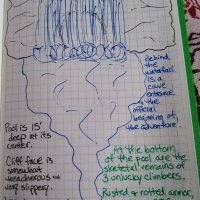 Behind
the
waterfall
is a
cave
entrance
& the
official
beginning of
the adventure.
Pool is 15'
deep at its
center.
Cliff face is
somewhat
treacherous &
very slippery.
At the bottom
of the pool are the
skeletal remains of
3 unlucky climbers.
Rusted & rotted armor,